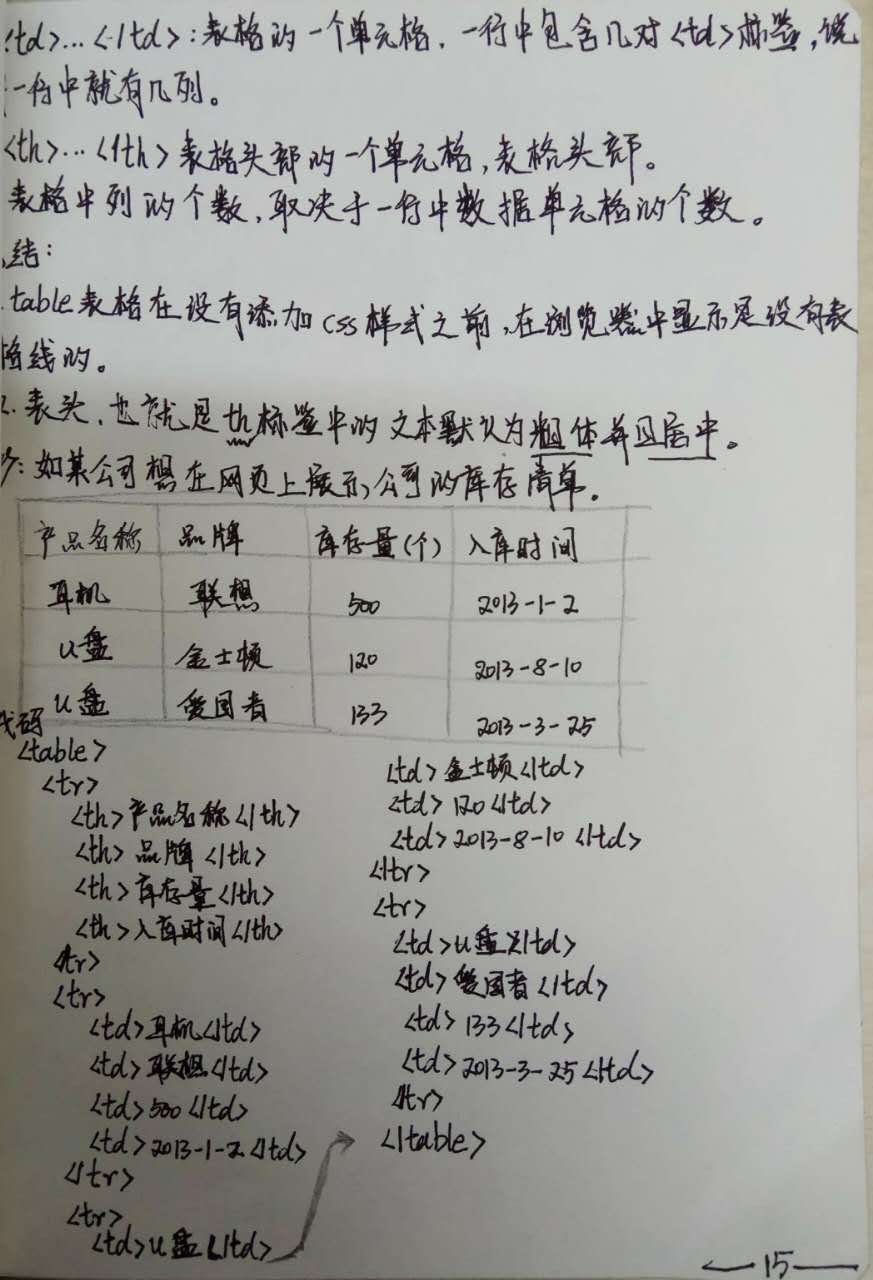 <td>…</td>:表格的一个单元格,一行中包含几对<td>标签,说
一行中就有几列。
<th>…</th>表格头部的一个单元格,表格头部。
表格中列的个数,取决于一行中数据单元格的个数。
结:
table表格在没有添加css样式之前,在浏览器中显示是没有表
格线的。
2.表头,也就是th标签中的文本默认为粗体并且居中。
如某公司想在网页上展示公司的库存清单。
产品名称 品牌 库存量(个) 入库时间
耳机 联想 500 2013-1-2
U盘 金士顿 120 2013-8-10
U盘 爱国者 133 2013-3-25
代码
<table>
<tr>
<th>产品名称</th>
<th>品牌</th>
<th>库存量</th>
<th>入库时间</th>
</tr>
<tr>
<td>耳机</td>
<td>联想</td>
<td>500</td>
<td>2013-1-2</td>
</tr>
<tr>
<td>U盘</td>
<td>金士顿</td>
<td>120</td>
<td>2013-8-10</td>
</tr>
<tr>
<td>U盘</td>
<td>爱国者</td>
<td>133</td>
<td>2013-3-25</td>
</tr>
</table>
15